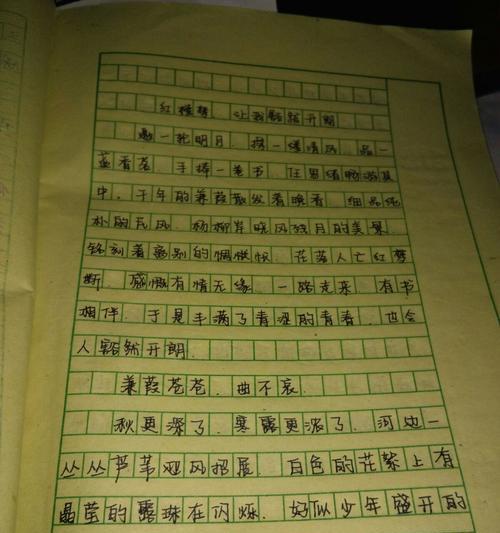 红楼梦，让我豁然开朗
邀一轮明月，携一缕清风，品一
盏香茗，手捧一卷书，任思绪畅游其
中，千年的蒹葭散发着晚香，细品纯
朴的民风，杨柳岸晓风残月的美景，
铭刻着离别的惆怅，花落人亡红梦
断，感慨有情无缘，一路走来，有书
相伴，于是丰满了青涩的青春，也会
人豁然开朗。
蒹葭苍苍，曲不哀
秋更深了，寒露更浓了，河边一
丛丛芦苇迎风招展，白色的花絮上有
晶莹的露珠在闪烁，好似少年盛开的